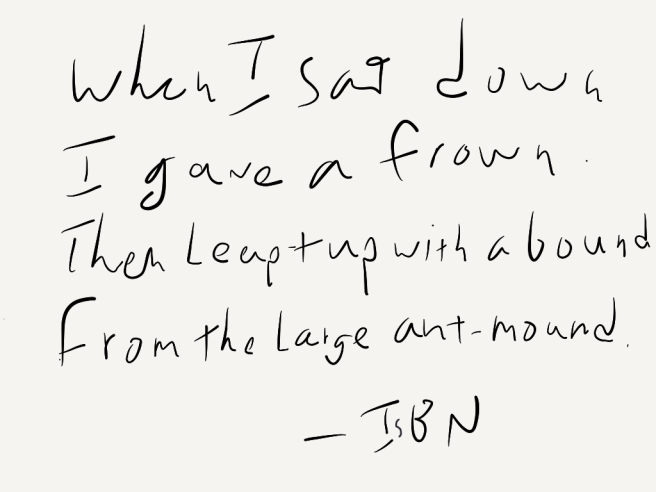 When I sat down
I gave a frown.
Then Leapt up with a bound
From the Large ant-mound.
— IsBN